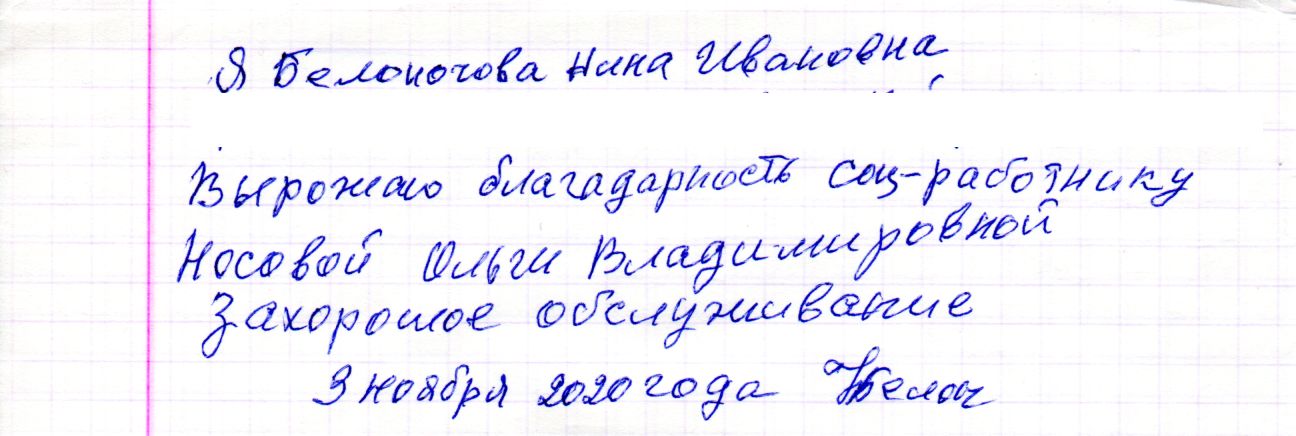 Я Белоночова Нина Ивановна
Вырожаю благадарность соц-работнику
Носовой Ольги Владимировной
Захорошое обслуживание
3 ноября 2020 года